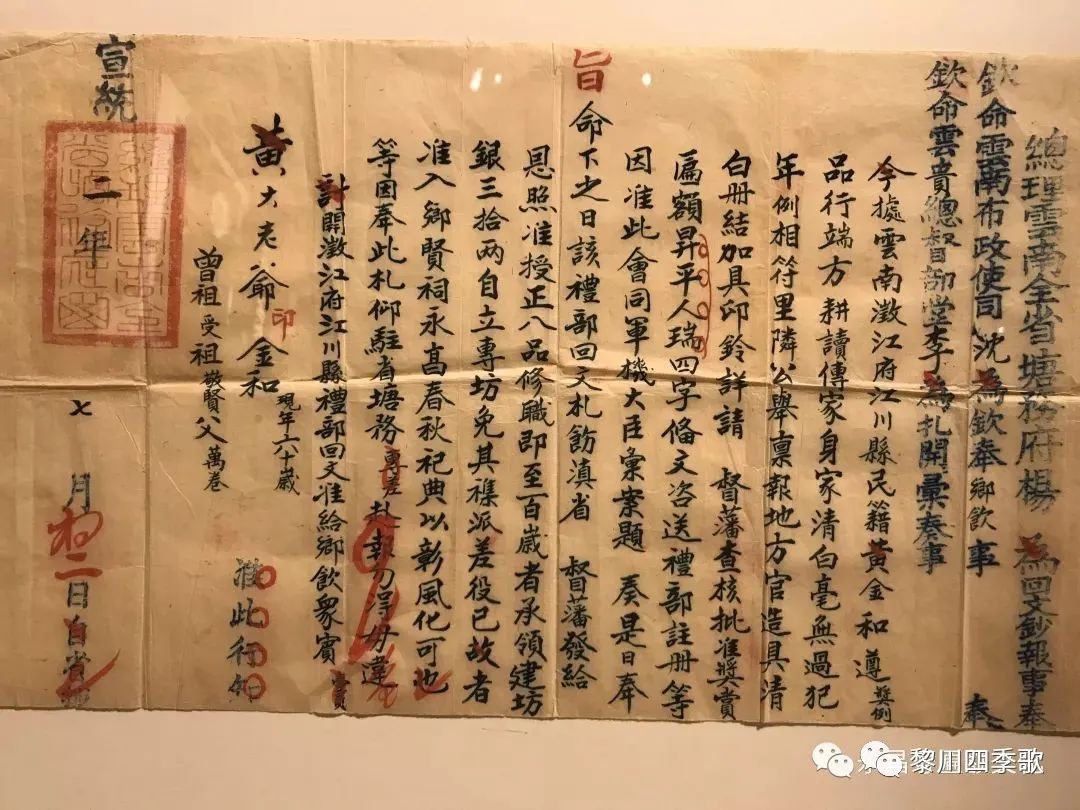 總理雲南全省塘務府楊 為回文鈔報事奉
欽命雲南布政使司沈 為欽奉鄉飲事 奉
欽命雲貴總督部堂李 為扎開彙奏事
今據雲南澂江府江川縣民籍黃金和 遵獎例
品行端方 耕讀傳家身家清白毫無過犯
年例相符里隣公舉稟報地方官造具清
白冊結加具印鈐詳請 督藩查核批准獎賞
匾額昇平人瑞四字俻文咨送禮部註冊等
因准此會同軍機大臣彙案題 奏是日奉
旨
命下之日該禮部回文札飭滇省 督藩發給
恩照准授正八品修職即至一百歲者承領建坊
銀三拾两自立專坊免其襍派差役已故者
准入鄉賢祠永享春秋祀典以彰風化可也
等因奉此札仰駐省塘務專差赴報勿得毋違
計開澂江府江川縣禮部回文准給鄉飲衆賓 賞
黃大老爺金和 現年六十歲
印
曾祖受祖敬賢父萬卷
准此行知
宣統二年七月初二日自省
黎周四季歌